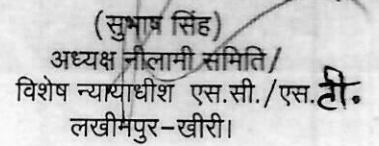 (सुभाष सिंह)
अध्यक्ष नीलामी समिति/
विशेष न्यायाधीश एस.सी./एस.टी.
लखीमपुर-खीरी।